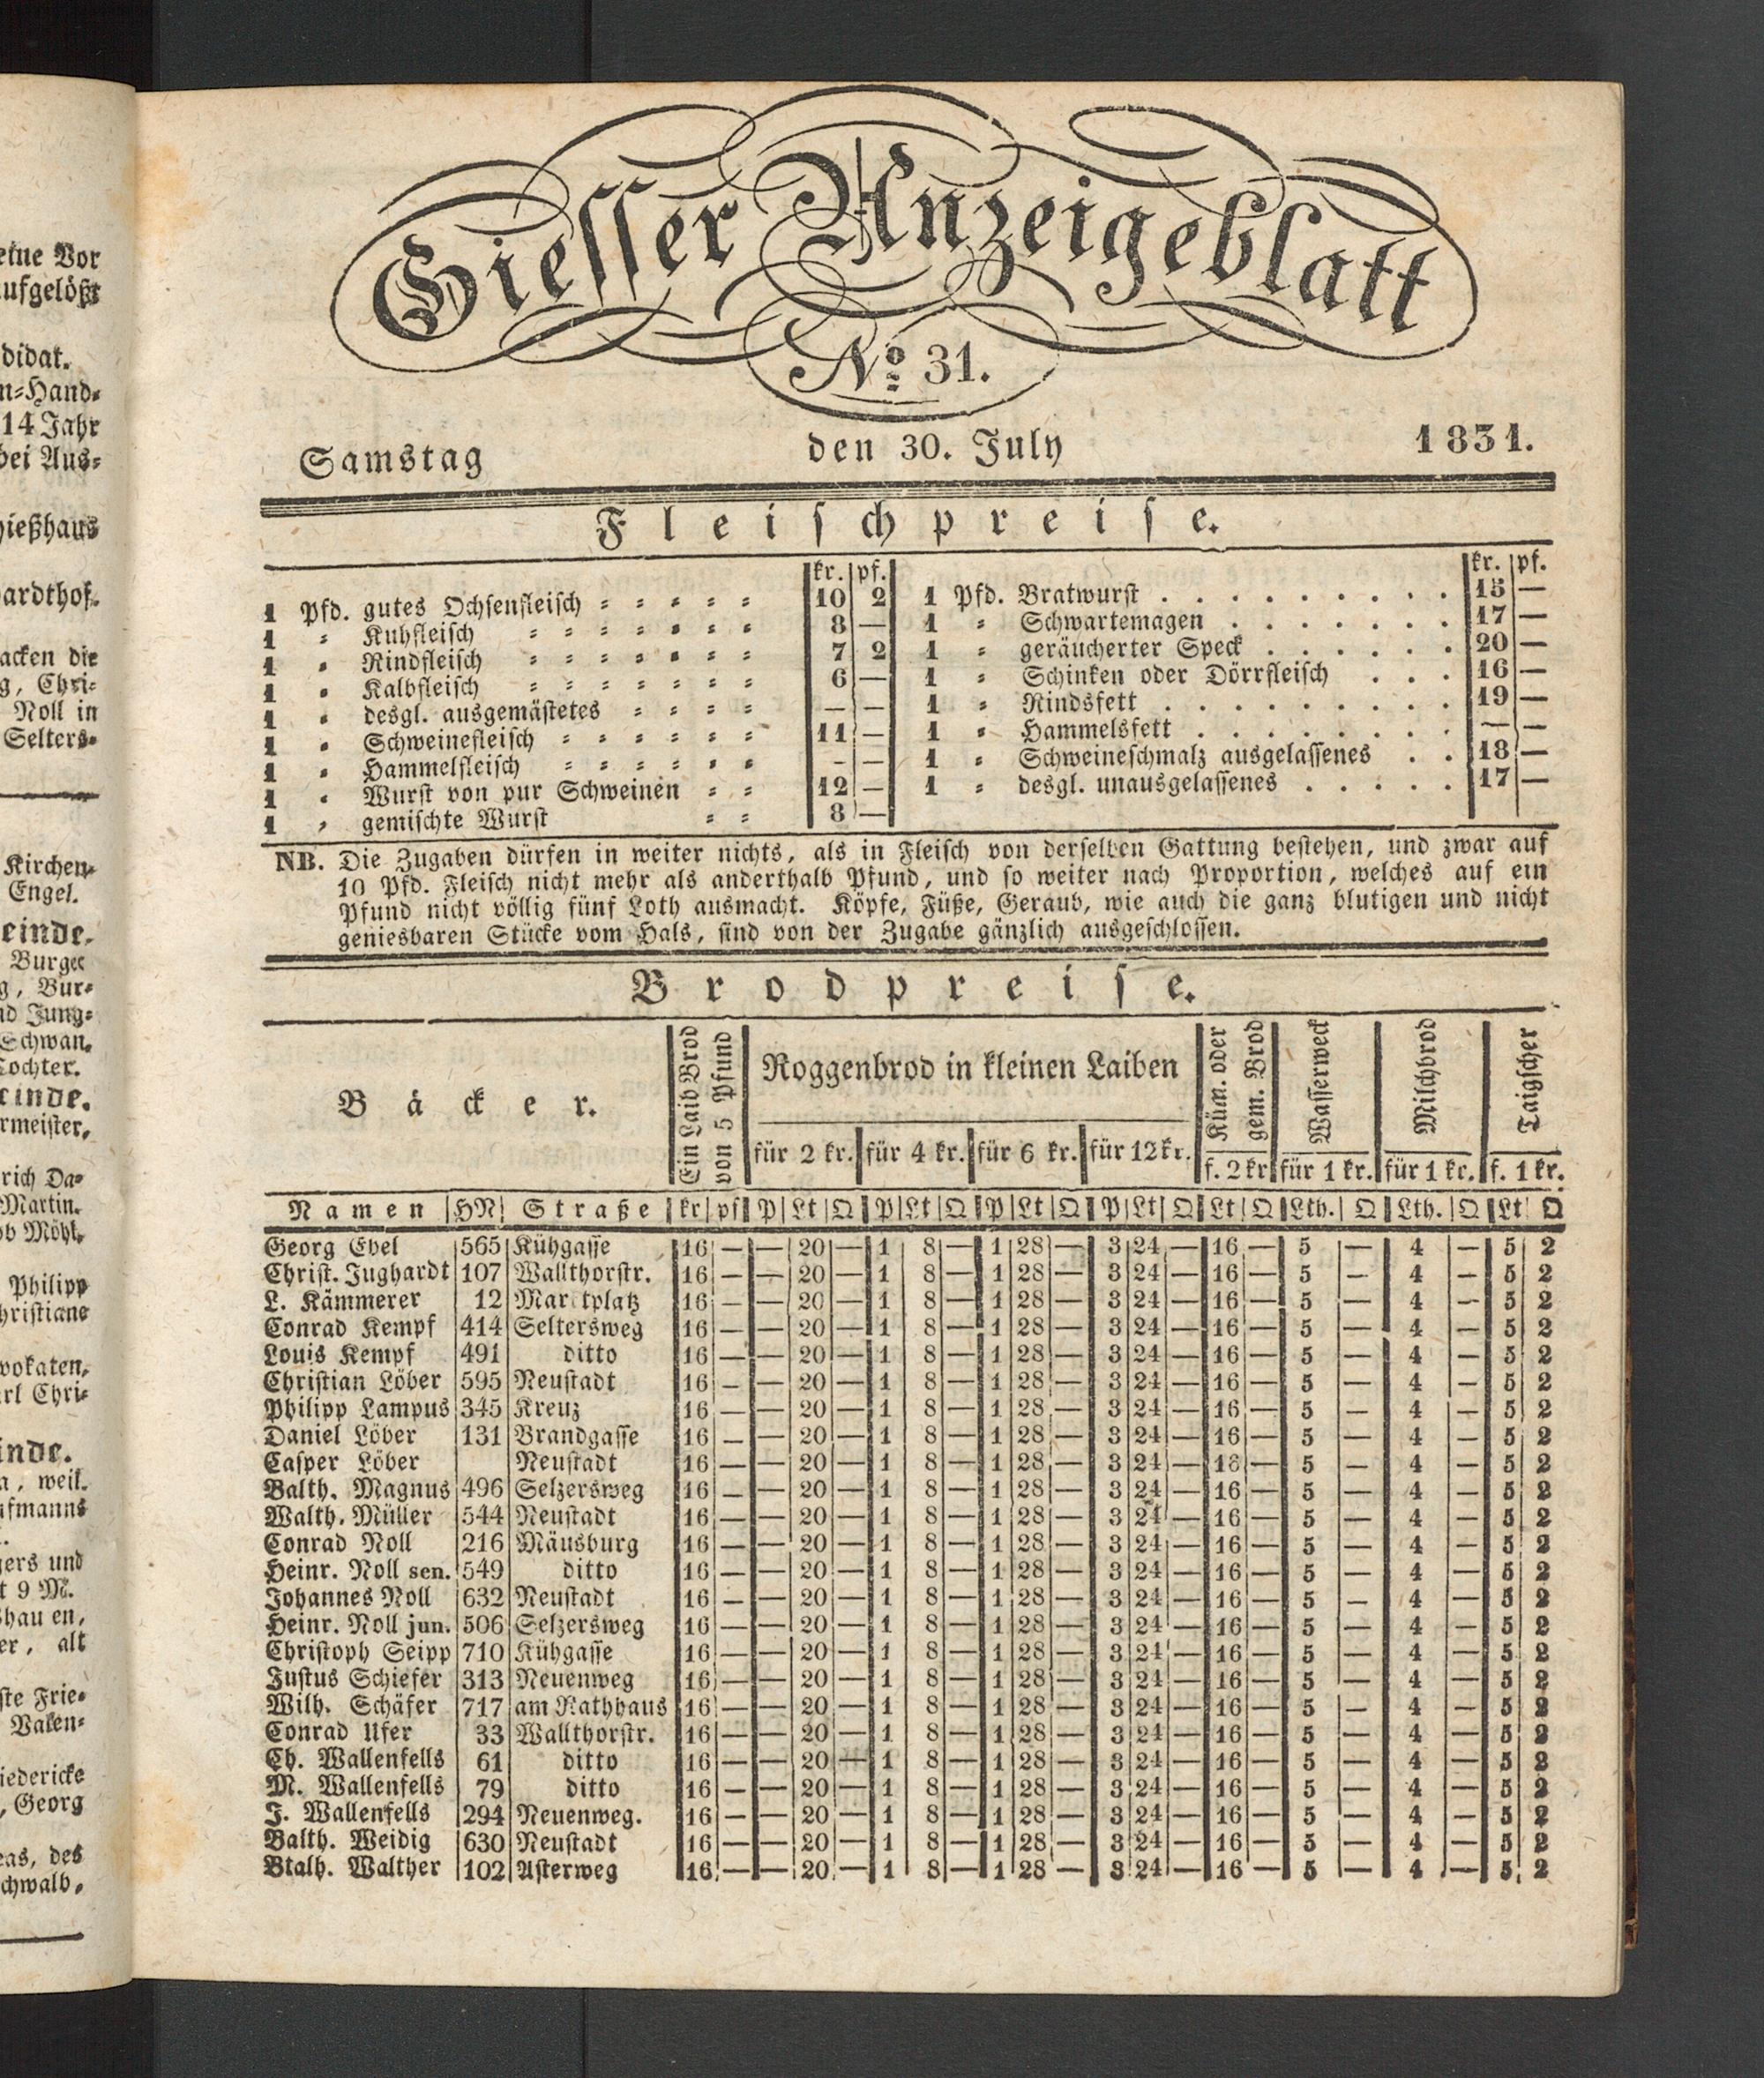 eine Vor
aufgelößt
didat.
n-Hand-
14 Jahr
bei Aus-
hießhaus
hardthof.
acken die
g, Chri-
Noll in
Selters-
Kirchen-
Engel.
einde.
Burger
g, Bur-
nd Jung-
Schwan,
Tochter.
einde.
rmeister,
rich Da-
Martin.
ob Möhl,
Philipp
hristiane
vokaten,
arl Chri-
inde.
a, weil.
ufmanns
gers und
t 9 M.
er, alt
ste Frie-
Valen-
iedericke
, Georg
eas, des
chwalb,
Giesser Anzeigeblatt
No. 31.
Samstag den 30. July 1831.
Fleischpreise.
kr. pf.
1 Pfd. gutes Ochsenfleisch 10 2
1 " Kuhfleisch 8 —
1 " Rindfleisch 7 2
1 " Kalbfleisch 6 —
1 " desgl. ausgemästetes — —
1 " Schweinefleisch 11 —
1 " Hammelfleisch — —
1 " Wurst von pur Schweinen 12 —
1 " gemischte Wurst 8 —
kr. pf.
1 Pfd. Bratwurst 15 —
1 " Schwartemagen 17 —
1 " geräucherter Speck 20 —
1 " Schinken oder Dörrfleisch 16 —
1 " Rindsfett 19 —
1 " Hammelsfett — —
1 " Schweineschmalz ausgelassenes 18 —
1 " desgl. unausgelassenes 17 —
NB. Die Zugaben dürfen in weiter nichts, als in Fleisch von derselben Gattung bestehen, und zwar auf
10 Pfd. Fleisch nicht mehr als anderthalb Pfund, und so weiter nach Proportion, welches auf ein
Pfund nicht völlig fünf Loth ausmacht. Köpfe, Füße, Geraub, wie auch die ganz blutigen und nicht
geniesbaren Stücke vom Hals, sind von der Zugabe gänzlich ausgeschlossen.
Brodpreise.
Bäcker.
Ein Laib Brod
von 5 Pfund
Roggenbrod in kleinen Laiben
für 2 kr. für 4 kr. für 6 kr. für 12 kr.
Küm. oder
gem. Brod
f. 2 kr
Wasserweck
für 1 kr.
Milchbrod
für 1 kr.
Taigscher
f. 1 kr.
Namen HN Straße kr pf P Lt Q P Lt Q P Lt Q P Lt Q Lt Q Lth. Q Lth. Q Lt Q
Georg Ebel 565 Kühgasse 16 — — 20 — 1 8 — 1 28 — 3 24 — 16 — 5 — 4 — 5 2
Christ. Jughardt 107 Wallthorstr. 16 — — 20 — 1 8 — 1 28 — 3 24 — 16 — 5 — 4 — 5 2
L. Kämmerer 12 Mar tplatz 16 — — 20 — 1 8 — 1 28 — 3 24 — 16 — 5 — 4 — 5 2
Conrad Kempf 414 Seltersweg 16 — — 20 — 1 8 — 1 28 — 3 24 — 16 — 5 — 4 — 5 2
Louis Kempf 491 ditto 16 — — 20 — 1 8 — 1 28 — 3 24 — 16 — 5 — 4 — 5 2
Christian Löber 595 Neustadt 16 — — 20 — 1 8 — 1 28 — 3 24 — 16 — 5 — 4 — 5 2
Philipp Lampus 345 Kreuz 16 — — 20 — 1 8 — 1 28 — 3 24 — 16 — 5 — 4 — 5 2
Daniel Löber 131 Brandgasse 16 — — 20 — 1 8 — 1 28 — 3 24 — 16 — 5 — 4 — 5 2
Casper Löber Neustadt 16 — — 20 — 1 8 — 1 28 — 3 24 — 18 — 5 — 4 — 5 2
Balth. Magnus 496 Selzersweg 16 — — 20 — 1 8 — 1 28 — 3 24 — 16 — 5 — 4 — 5 2
Walth. Müller 544 Neustadt 16 — — 20 — 1 8 — 1 28 — 3 24 — 16 — 5 — 4 — 5 2
Conrad Noll 216 Mäusburg 16 — — 20 — 1 8 — 1 28 — 3 24 — 16 — 5 — 4 — 5 2
Heinr. Noll sen. 549 ditto 16 — — 20 — 1 8 — 1 28 — 3 24 — 16 — 5 — 4 — 5 2
Johannes Noll 632 Neustadt 16 — — 20 — 1 8 — 1 28 — 3 24 — 16 — 5 — 4 — 5 2
Heinr. Noll jun. 506 Selzersweg 16 — — 20 — 1 8 — 1 28 — 3 24 — 16 — 5 — 4 — 5 2
Christoph Seipp 710 Kühgasse 16 — — 20 — 1 8 — 1 28 — 3 24 — 16 — 5 — 4 — 5 2
Justus Schiefer 313 Neuenweg 16 — — 20 — 1 8 — 1 28 — 3 24 — 16 — 5 — 4 — 5 2
Wilh. Schäfer 717 am Rathhaus 16 — — 20 — 1 8 — 1 28 — 3 24 — 16 — 5 — 4 — 5 2
Conrad Ufer 33 Wallthorstr. 16 — — 20 — 1 8 — 1 28 — 3 24 — 16 — 5 — 4 — 5 2
Ch. Wallenfells 61 ditto 16 — — 20 — 1 8 — 1 28 — 3 24 — 16 — 5 — 4 — 5 2
M. Wallenfells 79 ditto 16 — — 20 — 1 8 — 1 28 — 3 24 — 16 — 5 — 4 — 5 2
J. Wallenfells 294 Neuenweg. 16 — — 20 — 1 8 — 1 28 — 3 24 — 16 — 5 — 4 — 5 2
Balth. Weidig 630 Neustadt 16 — — 20 — 1 8 — 1 28 — 3 24 — 16 — 5 — 4 — 5 2
Btalh. Walther 102 Asterweg 16 — — 20 — 1 8 — 1 28 — 3 24 — 16 — 5 — 4 — 5 2